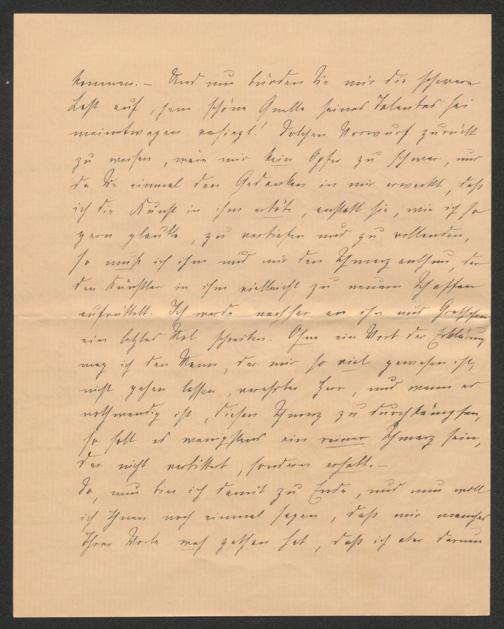 kommen. – Und nun bürden Sie mir die schwere
Last auf, jene schöne Quelle seines Talentes sei
meinetwegen versiegt! Solchen Vorwurf zurück
zu weisen, wäre mir kein Opfer zu schwer, und
da Sie einmal den Gedanken in mir erweckt, daß
ich die Kunst in ihm ertöte, anstatt sie, wie ich so
gern glaubte, zu vertiefen und zu vollenden,
so muß ich ihm und mir den Schmerz anthun, der
den Künstler in ihm vielleicht zu neuem Schaffen
aufrüttelt. Ich werde nachher an ihn und Gretchen
ein letztes Mal schreiben. Ohne ein Wort der Erklärung
mag ich den Mann, der mir so viel gewesen ist,
nicht gehen lassen, verehrter Herr, und wenn es
nothwendig ist, diesen Schmerz zu durchkämpfen,
so soll es wenigstens ein reiner Schmerz sein,
der nicht verbittert, sondern erhebt. –
So, nun bin ich damit zu Ende, und nun will
ich Ihnen noch einmal sagen, daß mir manches
Ihrer Worte weh gethan hat, daß ich aber darum